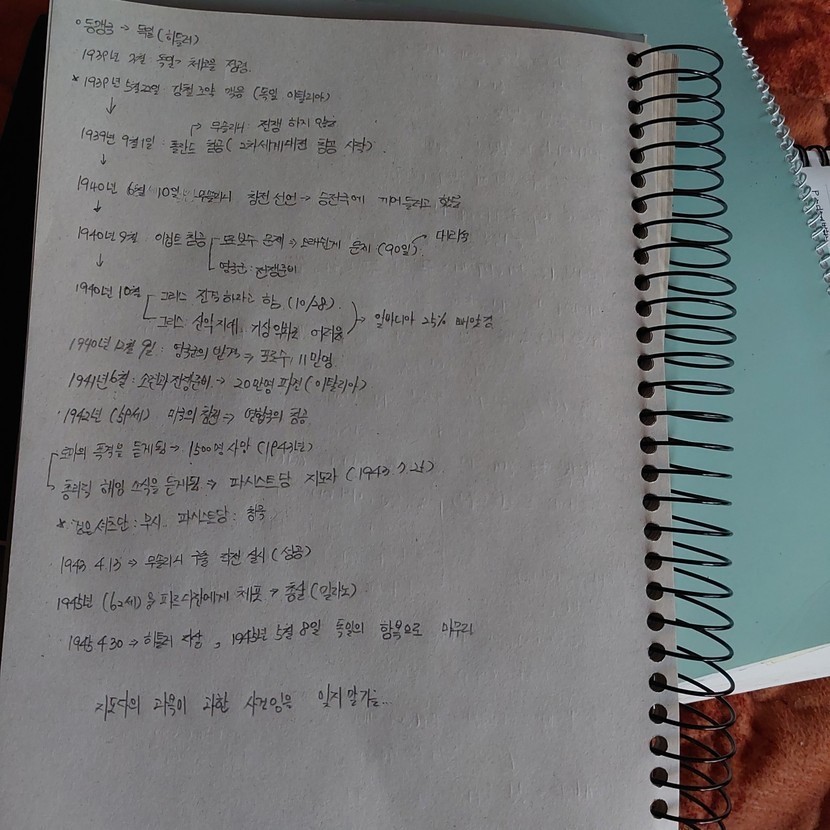 o 동맹국 → 독일 (히틀러)
1939년 3월 독일 → 체코를 점령.
* 1939년 5월 22일 강철 조약 맺음 (독일 이탈리아)
↓ 무솔리니: 전쟁 하지 않고
1939년 9월 1일 : 폴란드 침공 (2차세계대전 침공 시작).
↓
1940년 6월 10일 : 무솔리니 참전 선언 → 승전국에 끼어들려고 했음
↓
1940년 9월 이집트 침공 문제 → 문제 (90일)
↓ 영국군: 전쟁준비
1940년 10월 그리스 하라고 함 (10/28)
그리스 산악지대, 기상악화로 어려움 → 알바니아 25% 빼앗김
1940년 12월 9일 : 영국군의 반격 → 포로수 11만명
1941년 6월 : 소련과 전쟁준비 → 20만명 파견 (이탈리아)
1942년 (59세) 미국의 참전 → 연합국의 침공
로마의 폭격을 듣게됨 → 1500명 사망 (1943년)
총리직 해임 소식을 듣게됨 → 파시스트당 지도자 (1943. 7.
* 검은셔츠단 : 무시.. 파시스트당 : 침묵
1943 4.13 → 무솔리니 구출 작전 실시 (성공)
1945년 (62세) 을 파르티잔에게 체포 → 총살 (밀라노)
1945 4.30 → 히틀러 자살, 1945년 5월 8일 독일의 항복으로 마무리
지도자의 과욕이 과한 사건임을 잊지말기를...